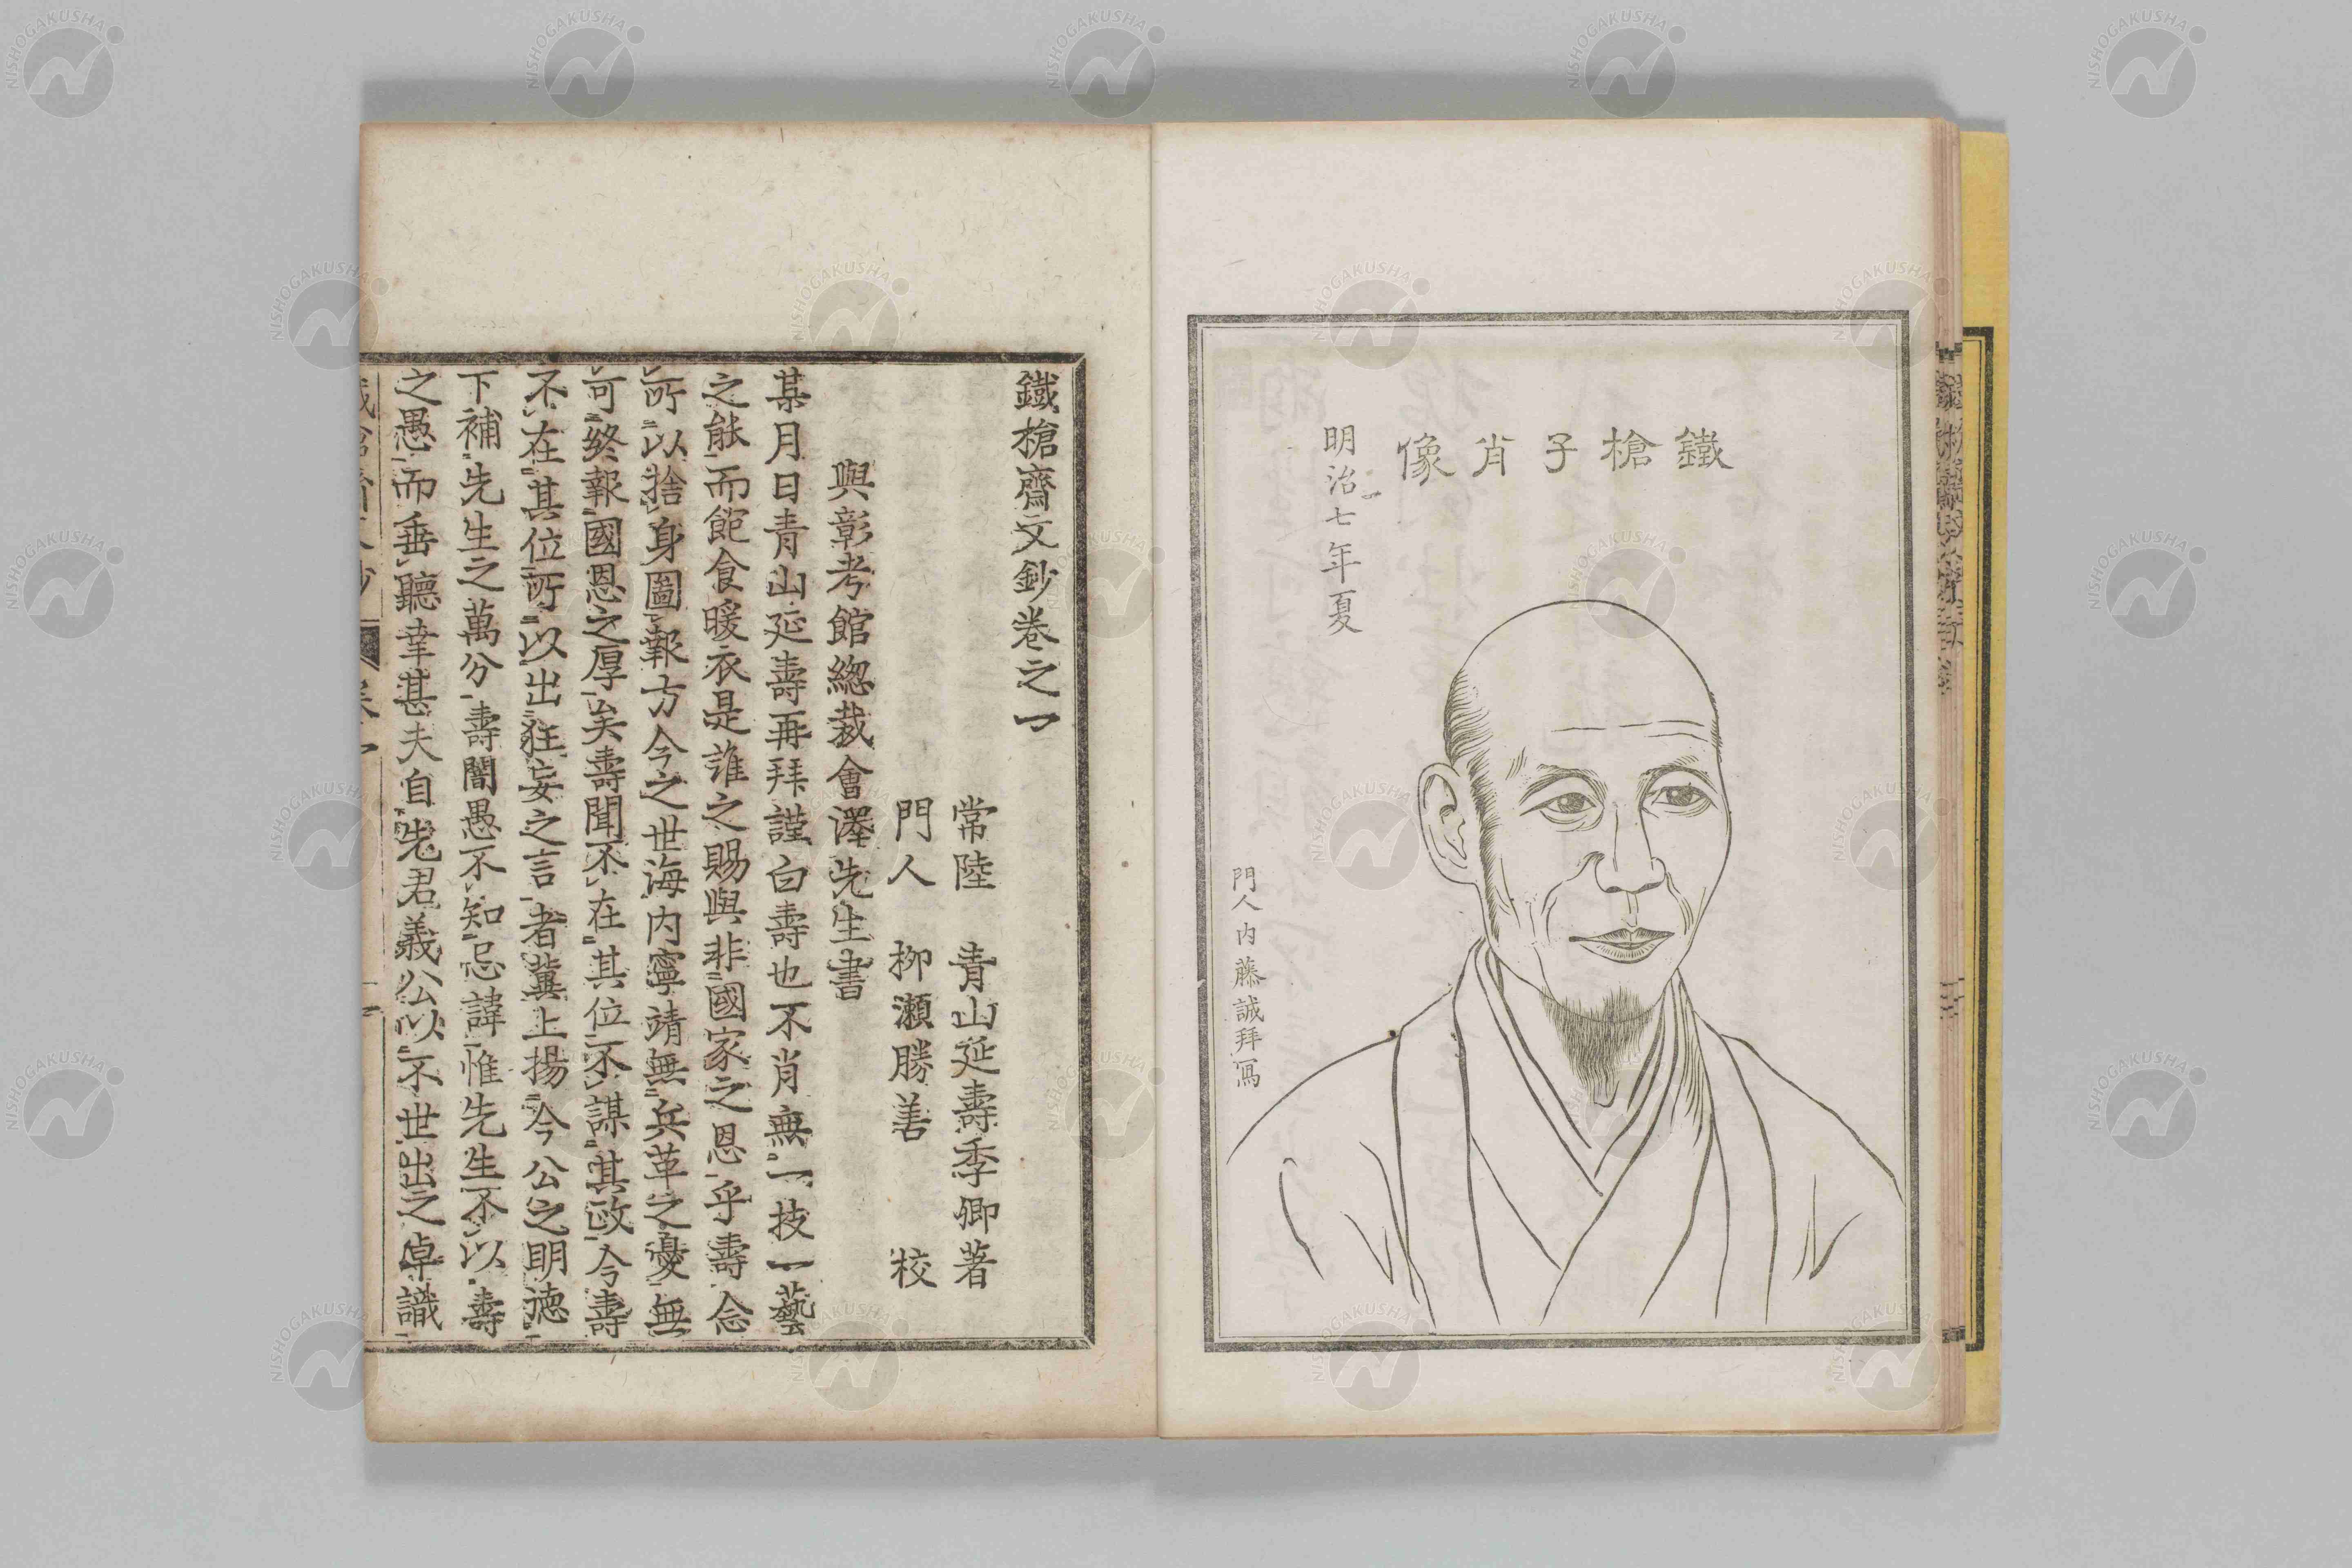 鐵槍子肖像
明治七年夏
門人内藤誠拜寫
鐵槍齋文鈔卷之一
常陸 青山延壽季卿著
門人 柳瀬勝善 校
與彰考館緫裁會澤先生書
某月日青山延壽再拜謹白壽也不肖無一技一藝
之能而飽食暖衣是誰之賜與非國家之恩乎壽念
所以捨身圖報方今之世海内寧靖無兵革之憂無
可終報國恩之厚矣壽聞不在其位不謀其政今壽
不在其位所以出狂妄之言者冀上揚今公之明德
下補先生之萬分壽闇愚不知忌諱惟先生不以壽
之愚而垂聽幸甚夫自先君義公以不世出之卓識
NISHOGAKUSHA